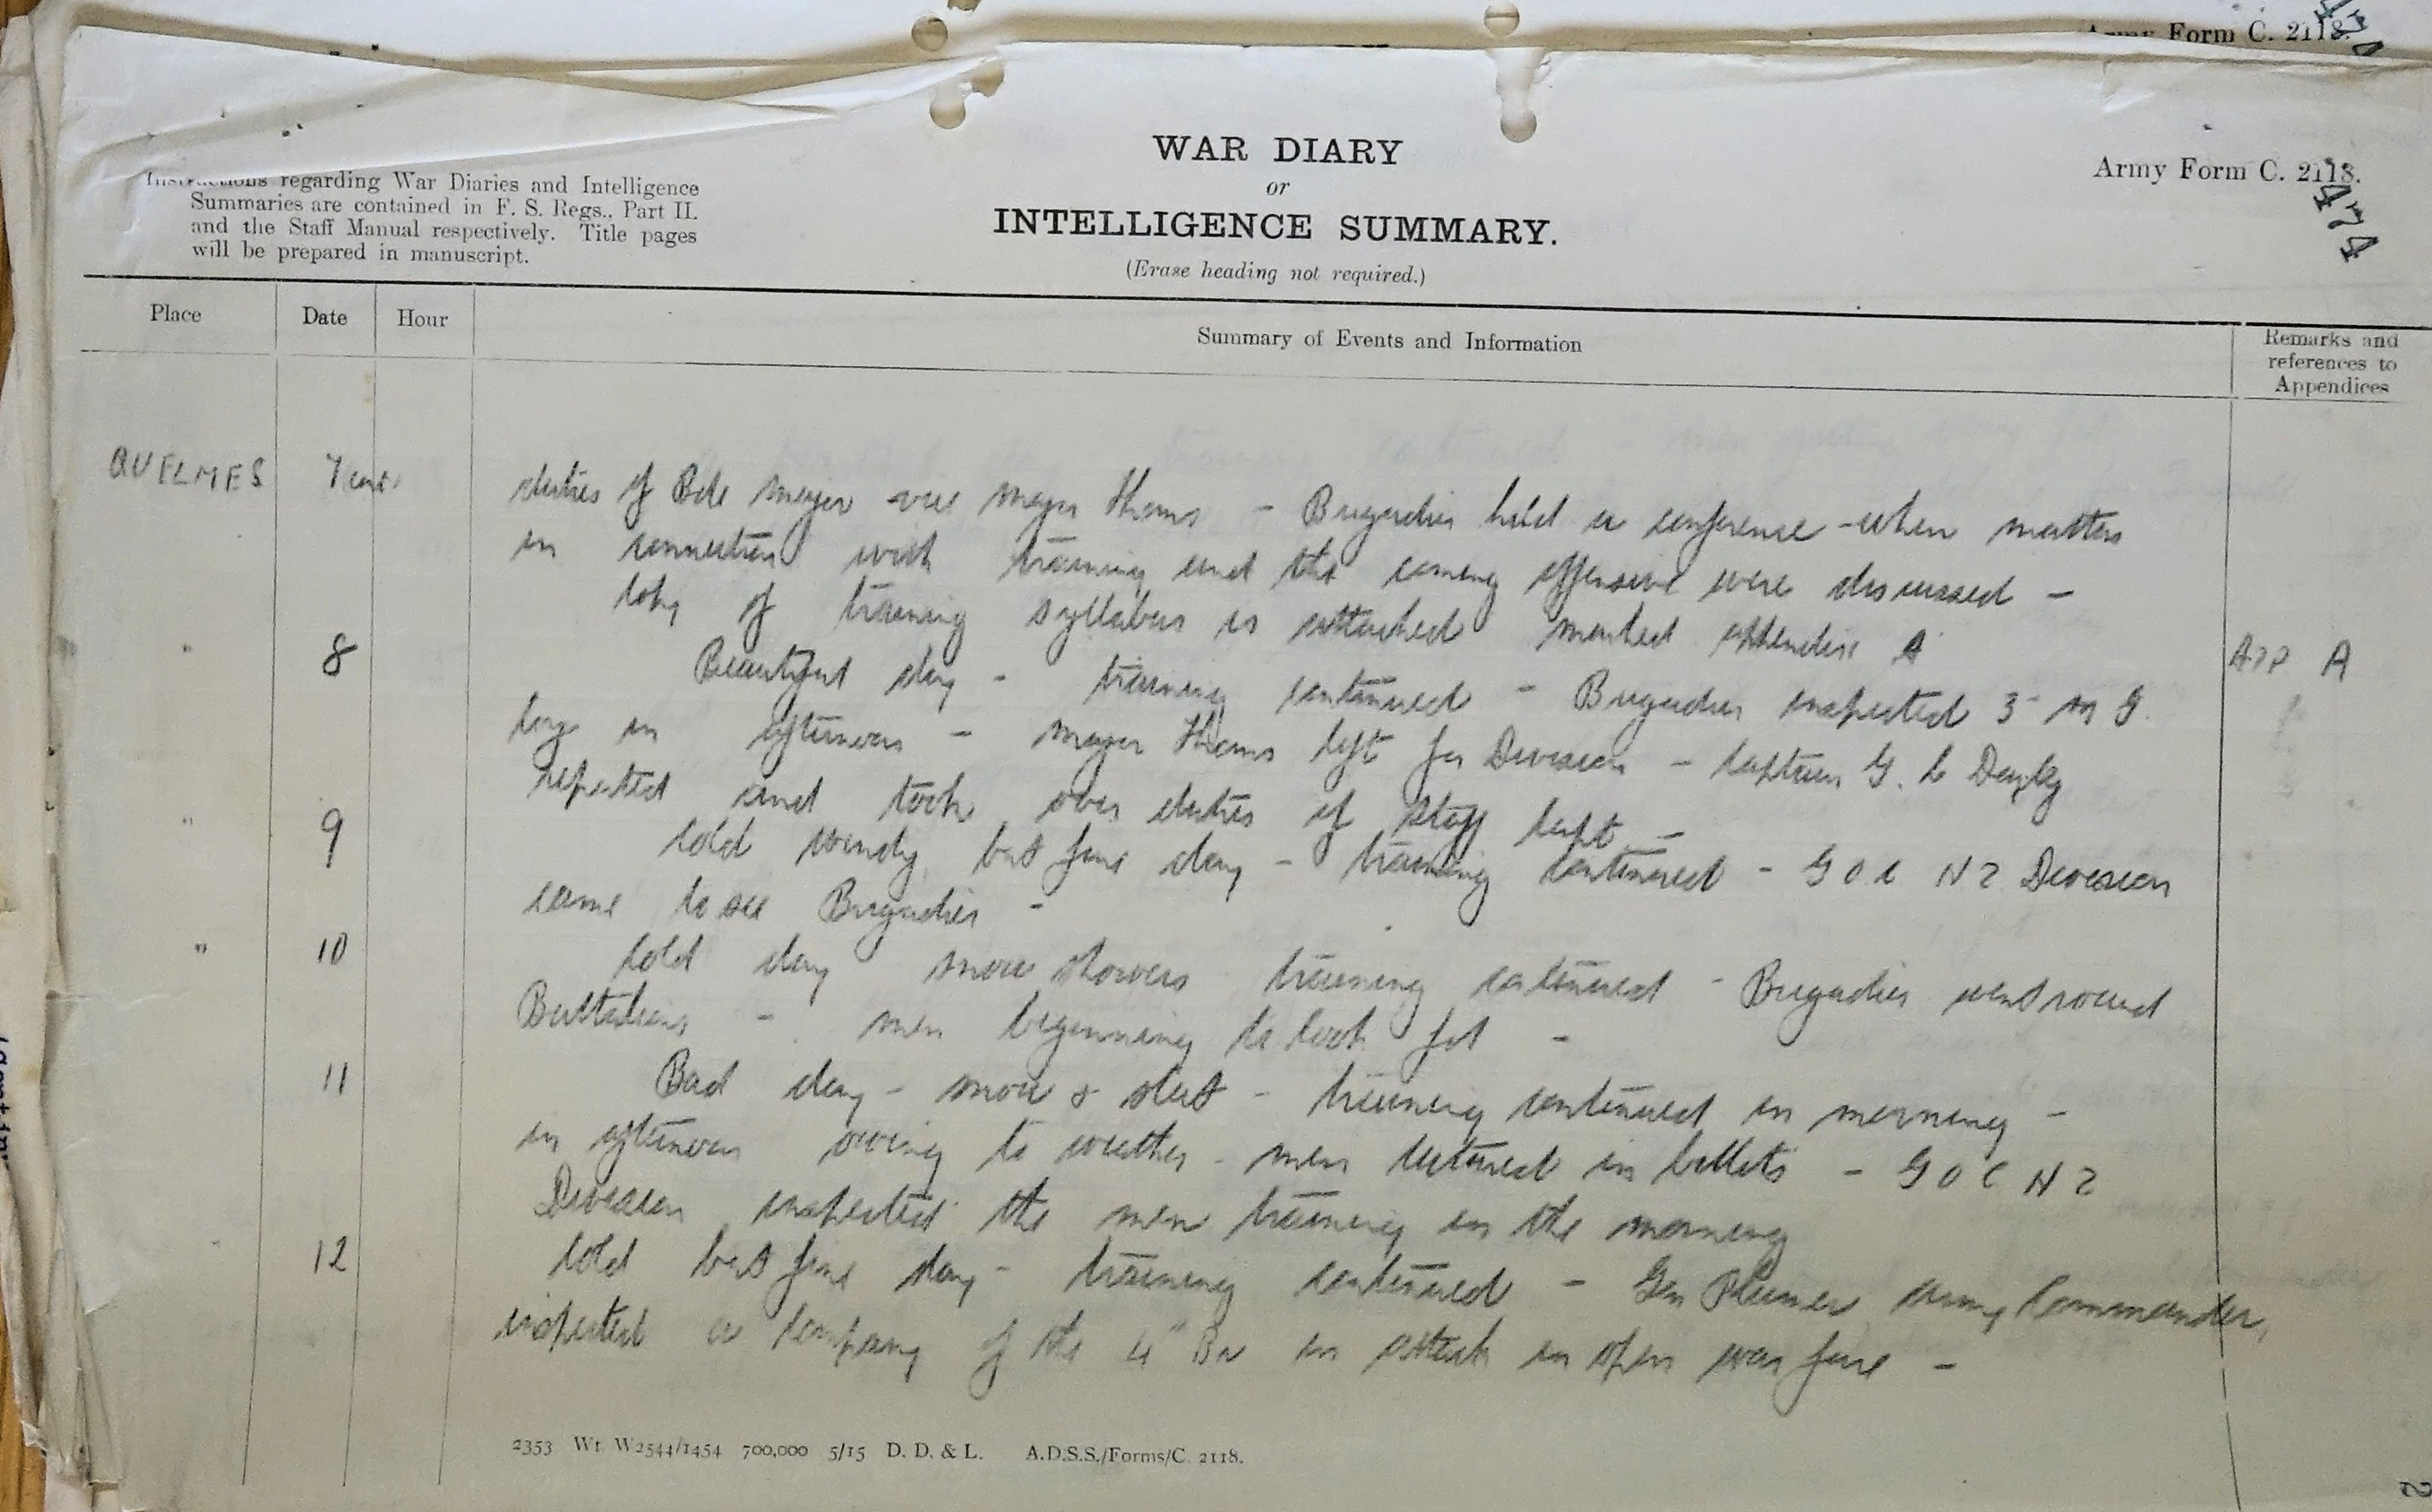 Army Form C. 2118.
WAR DIARY
or
INTELLIGENCE SUMMARY.
(Erase heading not required.)
Army Form C. 2118.
474
Instructions regarding War Diaries and Intelligence
Summaries are contained in F. S. Regs., Part II.
and the Staff Manual respectively. Title pages
will be prepared in manuscript.
Place Date Hour Summary of Events and Information Remarks and references to Appendices
QUELMES 7 cont. duties of Bde Major vice Major Thoms - Brigadier held a conference - when matters
in connection with training and the coming offensive were discussed -
Copy of training syllabus is attached marked appendix A
" 8 Beautiful day - training continued - Brigadier inspected 3rd M G. App A
Coy in afternoon - Major Thoms left for Division - Captain G. C Dailey
reported and took over duties of Staff Capt -
" 9 Cold windy but fine day - training continued - G O C N Z Division
came to see Brigadier -
" 10 Cold day snow showers training continued - Brigadier went round
Battalions - men beginning to look fit -
11 Bad day - snow & sleet - training continued in morning -
in afternoon owing to weather - men lectured in billets - G O C N Z
Division inspected the men training in the morning
12 Cold but fine day - training continued - Gen Plumer Army Commander,
inspected a Company of the 4th Bn in attack in open warfare -
2353 Wt. W2544/1454 700,000 5/15 D. D. & L. A.D.S.S./Forms/C. 2118.